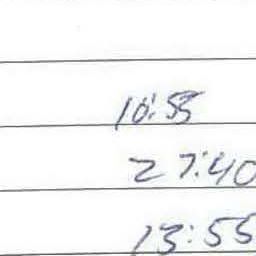 10:55
27:40
13:55